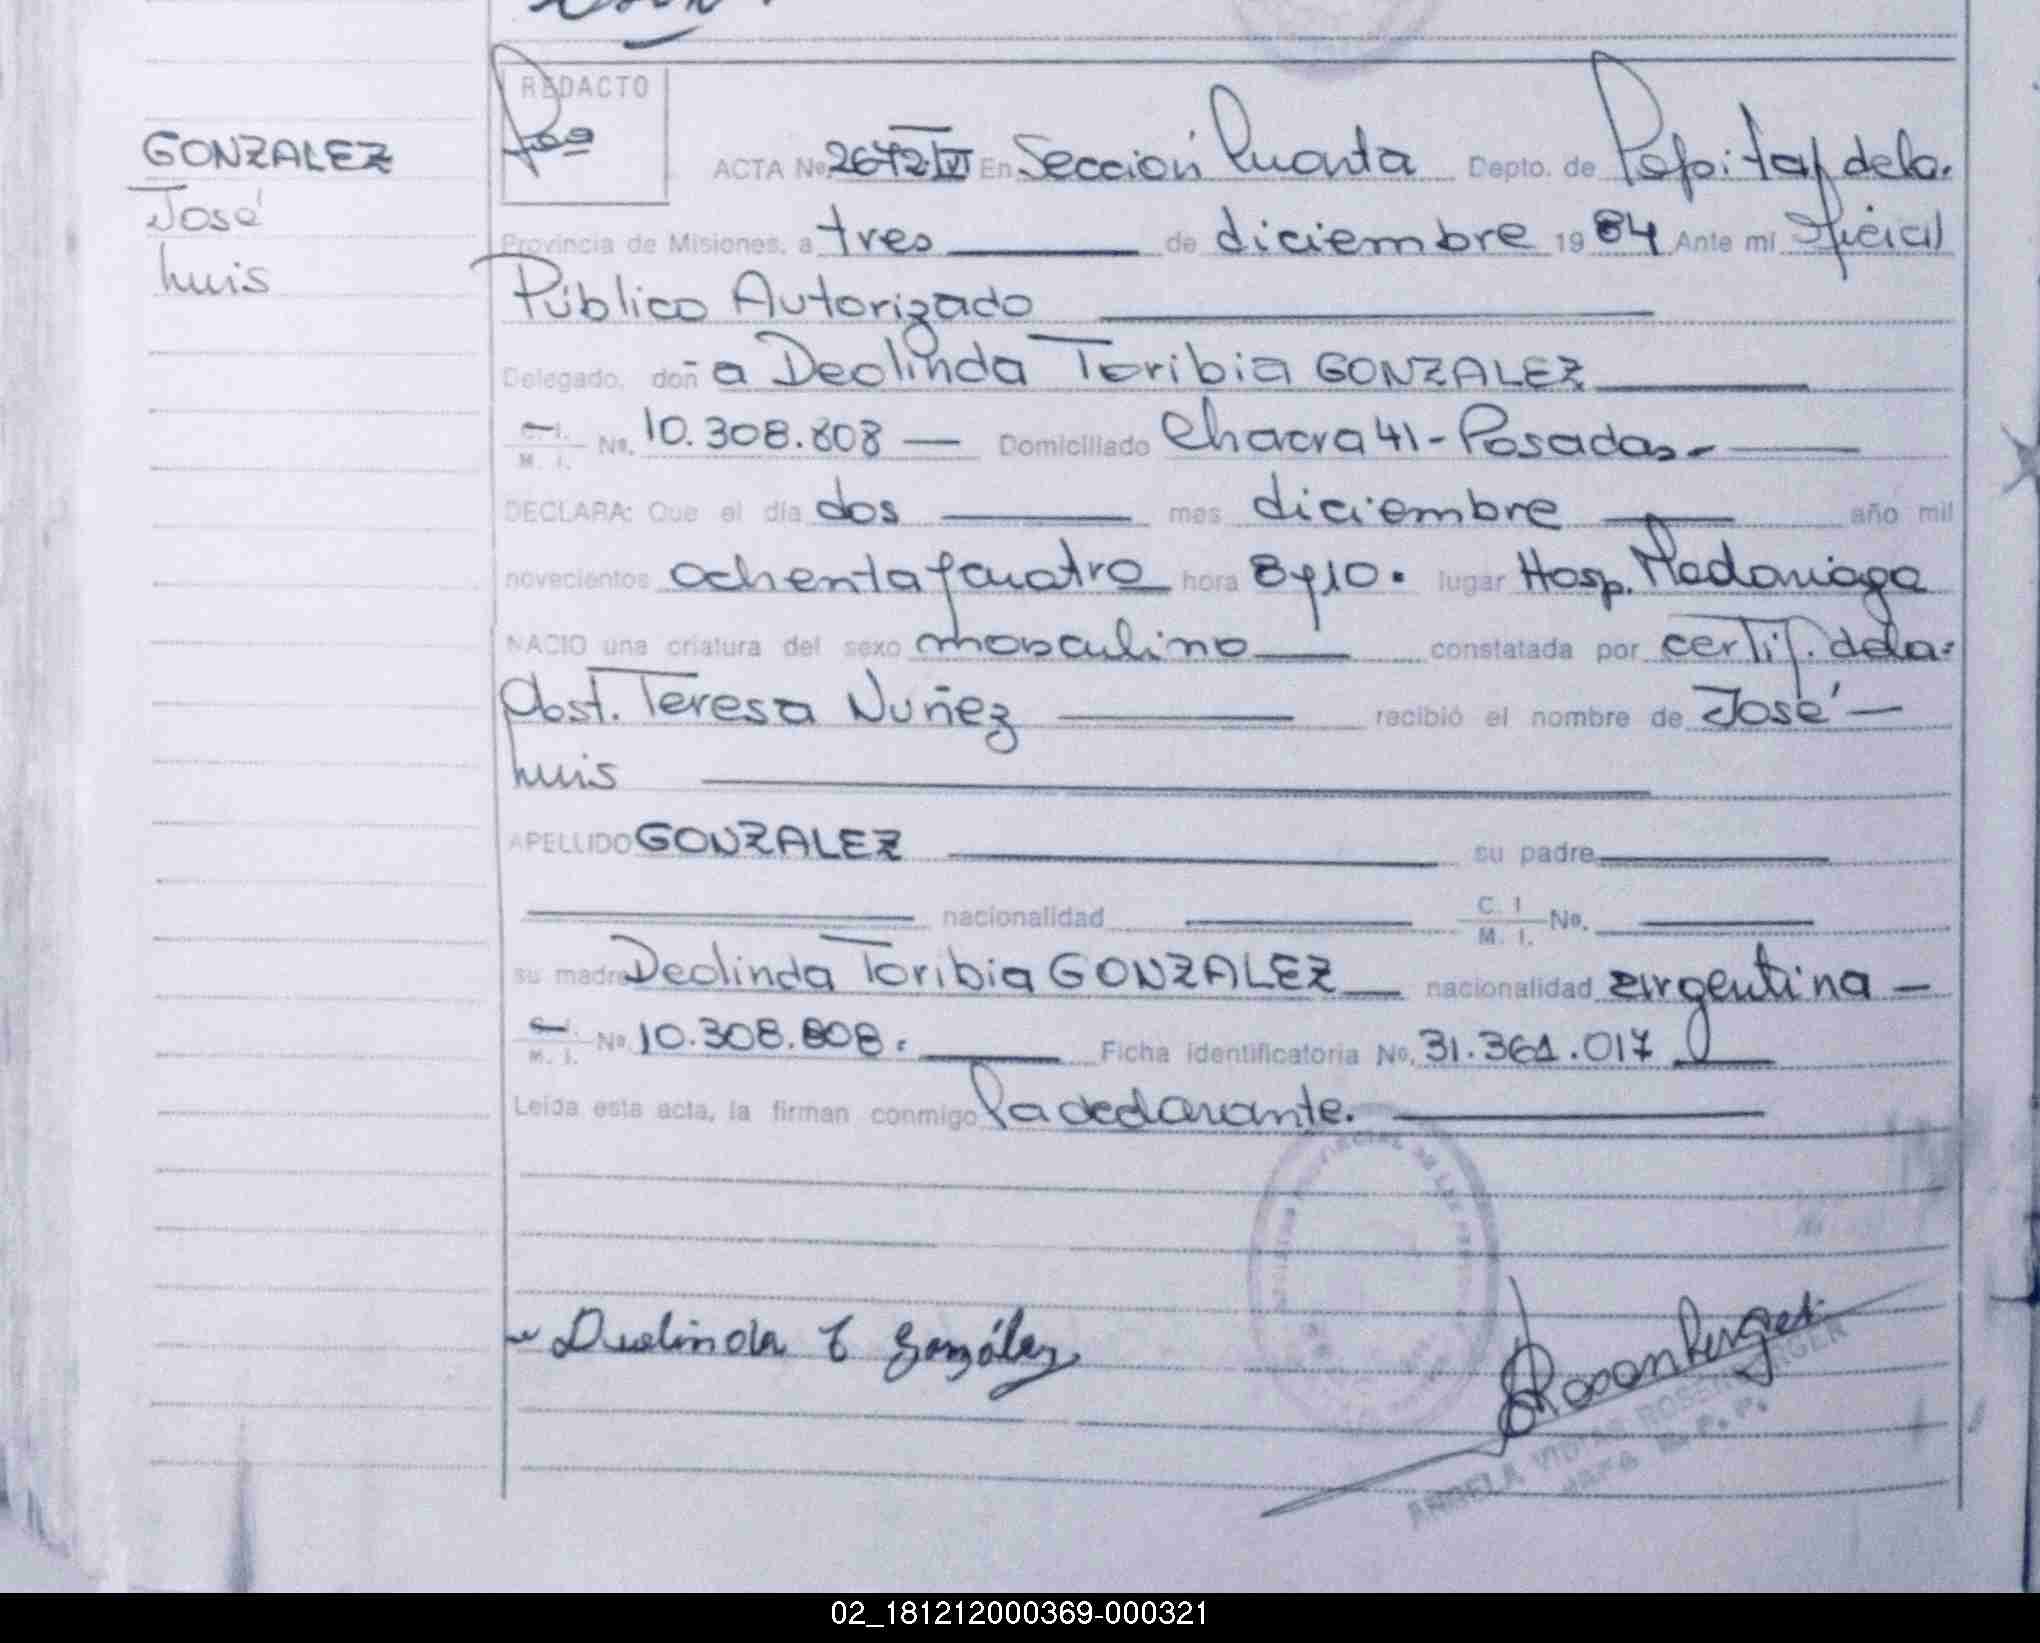 GONZALEZ
José
Luis
REDACTO
ACTA No. 2672-VI En Sección Cuarta Depto. de Capital de la
Provincia de Misiones, a tres de diciembre 1984 Ante mi Oficial
Público Autorizado
Delegado, doña Deolinda Toribia GONZALEZ
C. I. M. I. No. 10.308.808 Domiciliado Chacra 41 - Posadas.-
DECLARA: Que el día dos mes diciembre año mil
novecientos ochenta y cuatro hora 8 y 10. lugar Hosp. Madariaga
NACIO una criatura del sexo masculino constatada por certif. de la
Obst. Teresa Nuñez recibió el nombre de José
Luis
APELLIDO GONZALEZ su padre
nacionalidad C. I. M. I. No.
su madre Deolinda Toribia GONZALEZ nacionalidad argentina
C. I. M. I. No. 10.308.808. Ficha identificatoria No. 31.361.017
Leída esta acta, la firman conmigo la declarante.
Deolinda T González
Rosenberger
ANGELA ROSENBERGER
02_181212000369-000321